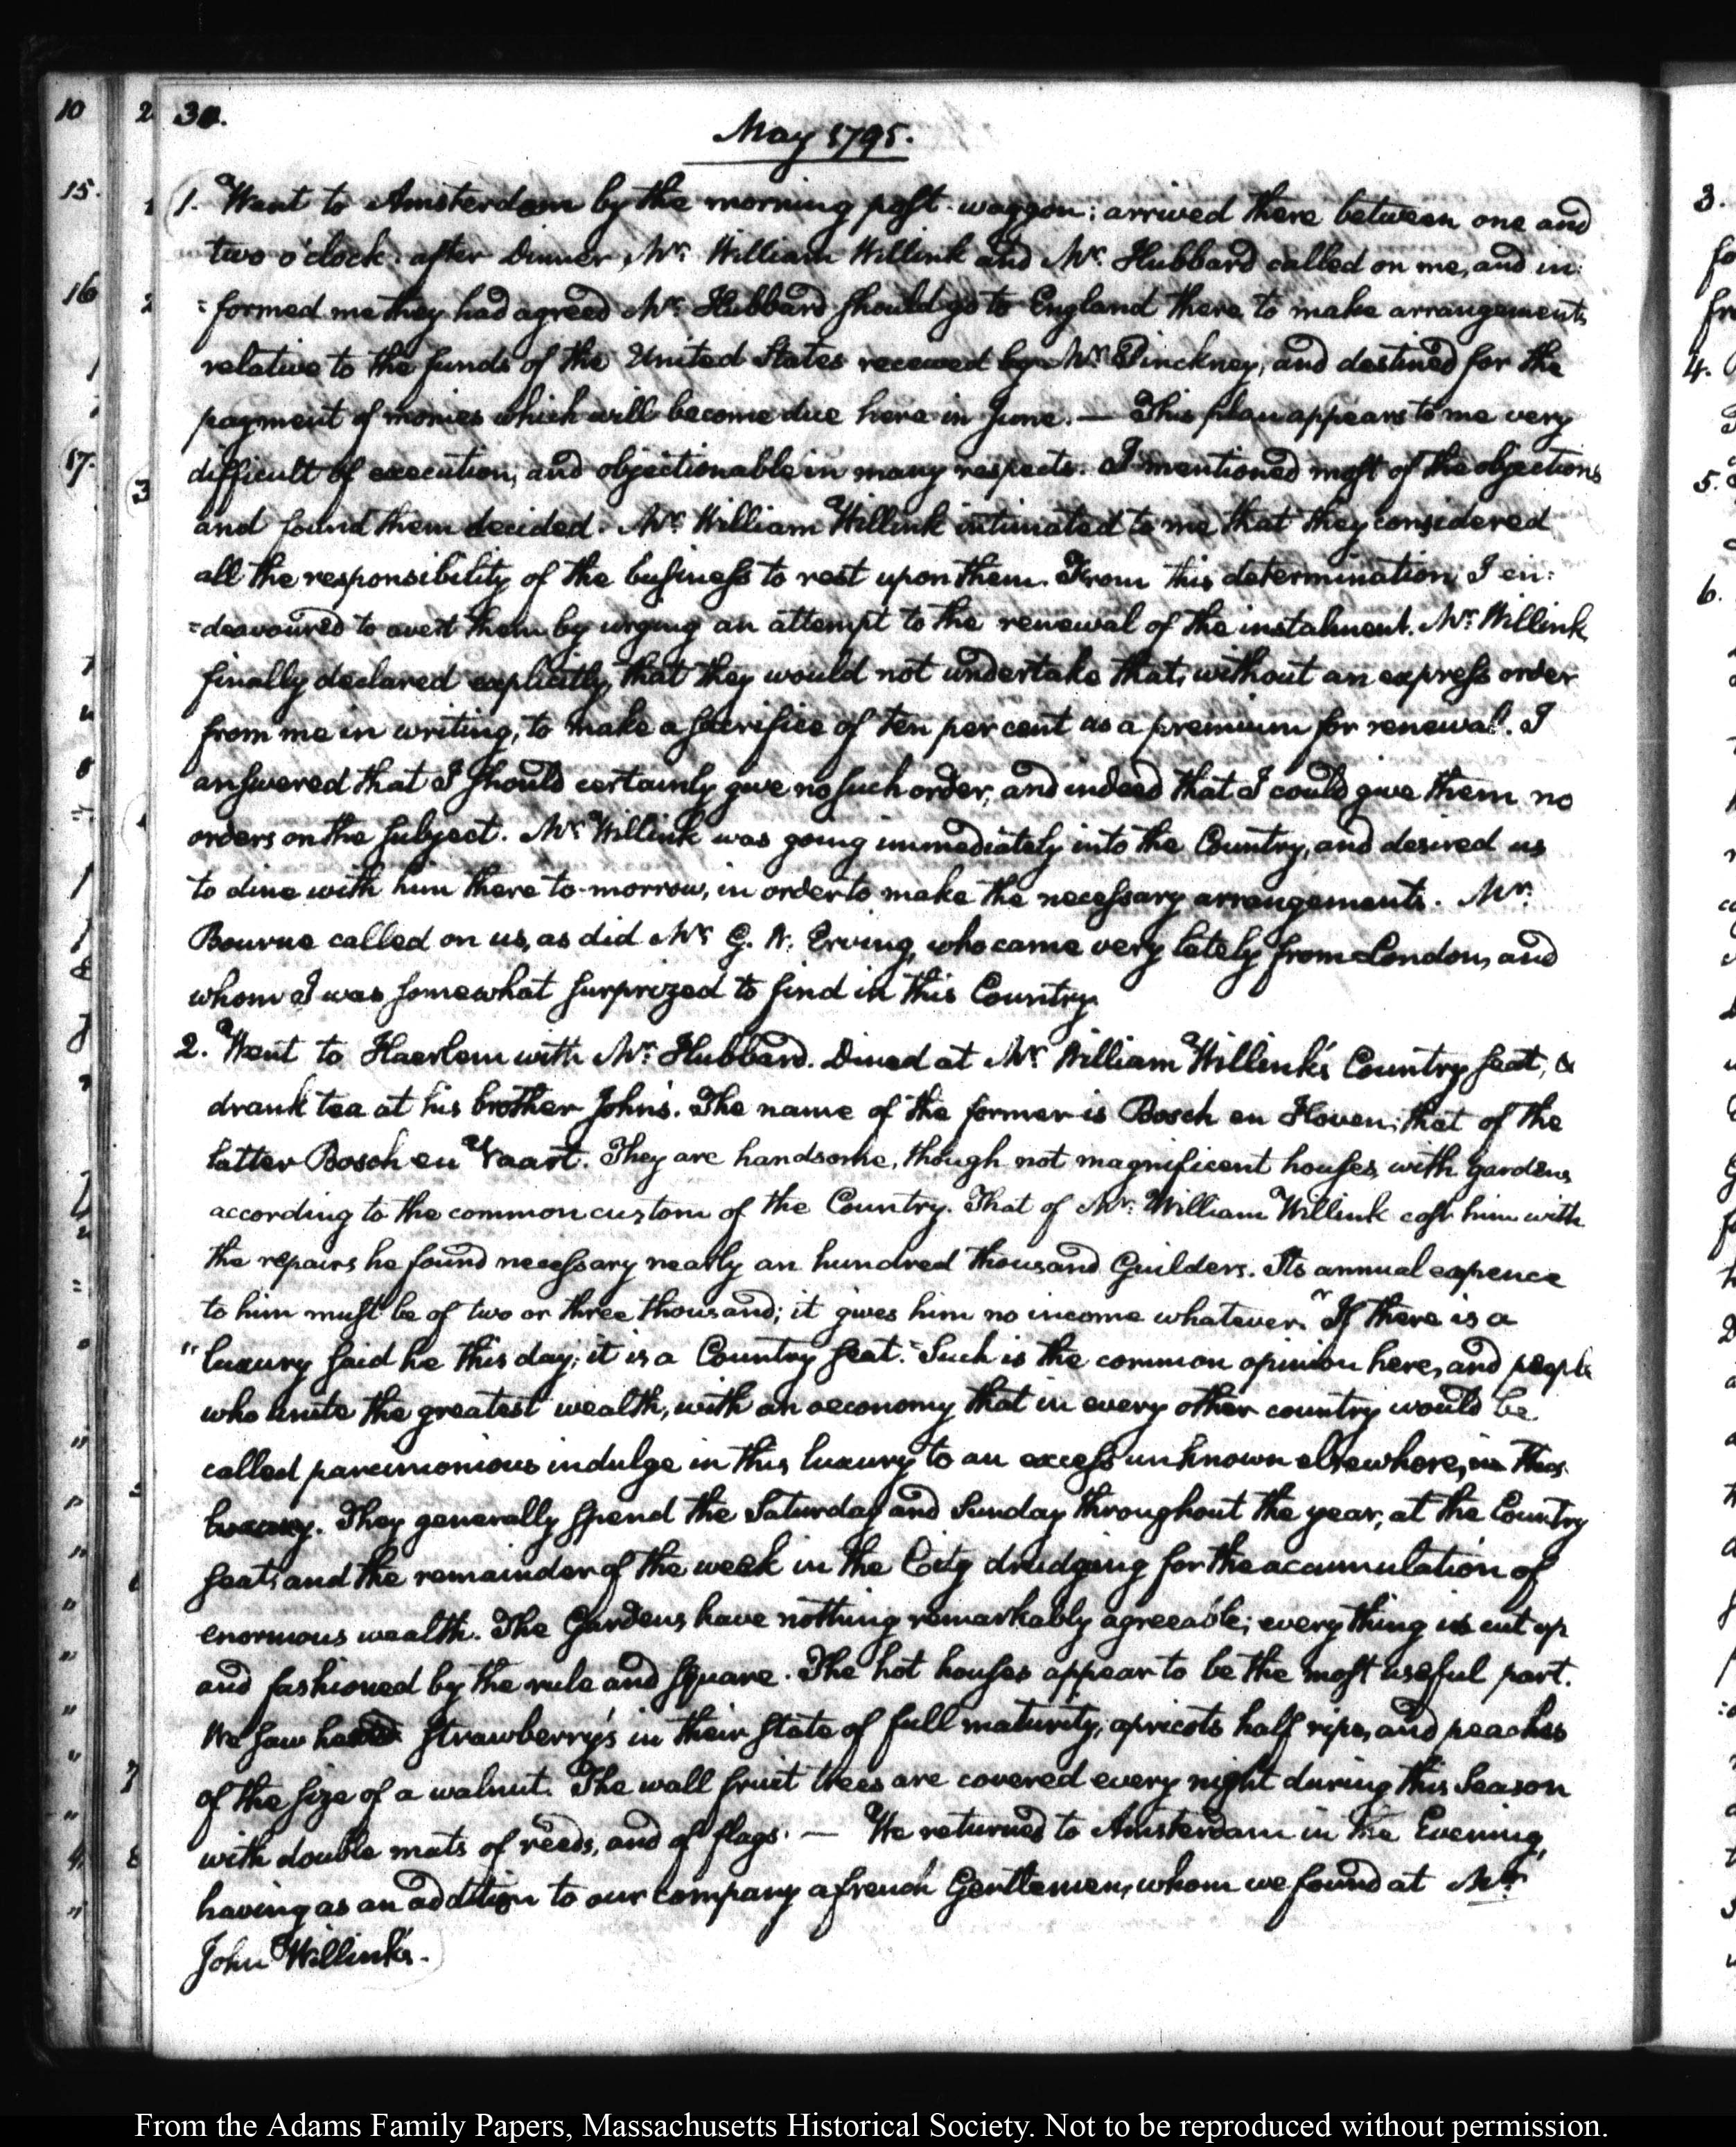 30.
May 1795.
1. Went to Amsterdam by the morning post-waggon: arrived there between one and
two o'clock. after Dinner, Mr. William Willink and Mr. Hubbard called on me, and in:
=formed me they had agreed Mr. Hubbard should go to England there to make arrangements
relative to the funds of the United States received by Mr. Pinckney, and destined for the
payment of monies which will become due here in June. — This plan appears to me very
difficult of execution, and objectionable in many respects. I mentioned most of the objections
and found them decided. Mr. William Willink intimated to me that they considered
all the responsibility of the business to rest upon them. From this determination I en:
=deavoured to avert them by urging an attempt to the renewal of the instalment. Mr. Willink
finally declared explicitly, that they would not undertake that, without an express order
from me in writing, to make a sacrifice of ten per cent as a premium for renewal. I
answered that I should certainly give no such order, and indeed that I could give them no
orders on the subject. Mr. Willink was going immediately into the Country, and desired us
to dine with him there to-morrow, in order to make the necessary arrangements. Mr.
Bourne called on us, as did Mr. G. W. Erving, who came very lately from London, and
whom I was somewhat surprized to find in this Country.
2. Went to Haerlem with Mr. Hubbard. Dined at Mr. William Willink's Country seat, &
drank tea at his brother John's. The name of the former is Bosch en Hoven; that of the
latter Bosch en Vaart. They are handsome, though not magnificent houses, with gardens
according to the common custom of the Country. That of Mr. William Willink cost him with
the repairs he found necessary nearly an hundred thousand Guilders. Its annual expence
to him must be of two or three thousand; it gives him no income whatever. "If there is a
"luxury said he this day, it is a Country seat." Such is the common opinion here, and people
who unite the greatest wealth, with an oeconomy that in every other country would be
called parcimonious indulge in this luxury to an excess unknown elsewhere, in this
luxury. They generally spend the Saturday and Sunday throughout the year, at the Country
seat, and the remainder of the week in the City drudging for the accumulation of
enormous wealth. The Gardens have nothing remarkably agreeable; every thing is cut up
and fashioned by the rule and square. The hot houses appear to be the most useful part.
We saw strawberry's in their state of full maturity, apricots half ripe, and peaches
of the size of a walnut. The wall fruit trees are covered every night during this Season
with double mats of reeds, and of flags. — We returned to Amsterdam in the Evening,
having as an addition to our company a french Gentleman, whom we found at Mr.
John Willink's.
From the Adams Family Papers, Massachusetts Historical Society. Not to be reproduced without permission.